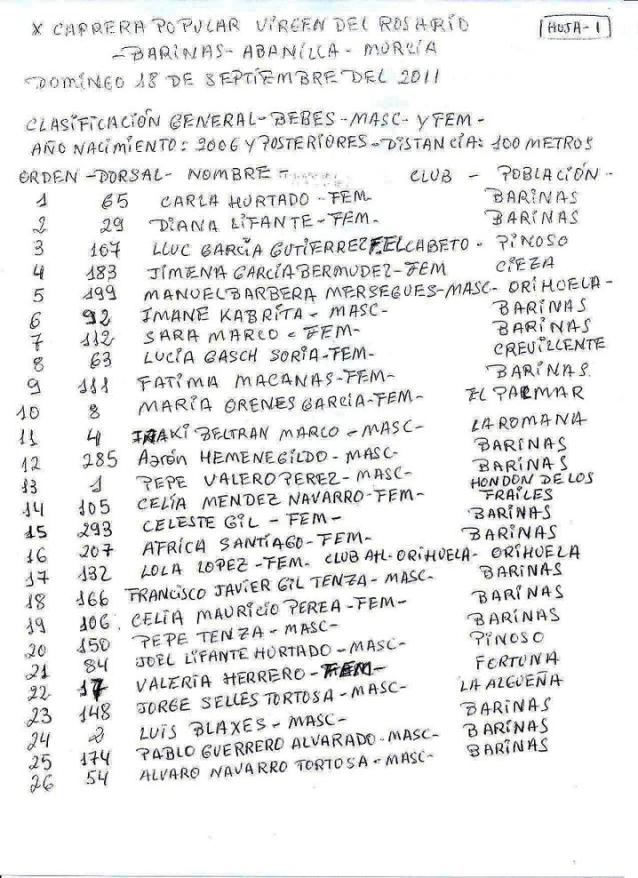 X CARRERA POPULAR VIRGEN DEL ROSARIO HOJA-1
-BARINAS-ABANILLA-MURCIA
DOMINGO 18 DE SEPTIEMBRE DEL 2011
CLASIFICACIÓN GENERAL-BEBES-MASC-Y FEM-
AÑO NACIMIENTO: 2006 Y POSTERIORES-DISTANCIA: 100 METROS
ORDEN-DORSAL-NOMBRE- CLUB - POBLACIÓN-
1 65 CARLA HURTADO-FEM- BARINAS
2 29 DIANA LIFANTE-FEM- BARINAS
3 167 LLUC GARCÍA GUTIERREZ F.EL CABETO- PINOSO
4 183 JIMENA GARCÍA BERMUDEZ-FEM CIEZA
5 199 MANUEL BARBERA MERSEGUES-MASC- ORIHUELA-
6 92 IMANE KABRITA- MASC- BARINAS
7 112 SARA MARCO - FEM- BARINAS
8 63 LUCÍA GASCH SORIA-FEM- CREVILLENTE
9 111 FATIMA MACANAS-FEM- BARINAS.
10 8 MARIA ORENES GARCIA-FEM- EL PALMAR
11 4 IÑAKI BELTRAN MARCO - MASC- LA ROMANA
12 285 Aarón HEMENEGILDO - MASC- BARINAS
13 1 PEPE VALERO PEREZ - MASC- BARINAS
14 105 CELIA MENDEZ NAVARRO-FEM- HONDON DE LOS FRAILES
15 293 CELESTE GIL - FEM- BARINAS
16 207 AFRICA SANTIAGO-FEM- BARINAS
17 132 LOLA LOPEZ-FEM- CLUB ATL-ORIHUELA- ORIHUELA
18 166 FRANCISCO JAVIER GIL TENZA-MASC- BARINAS
19 106. CELIA MAURICIO PEREA-FEM- BARINAS
20 150 PEPE TENZA - MASC- BARINAS
21 84 JOEL LIFANTE HURTADO-MASC- PINOSO
22 17 VALERIA HERRERO-FEM- FORTUNA
23 148 JORGE SELLES TORTOSA-MASC- LA ALGUEÑA
24 2 LUIS BLAXES - MASC- BARINAS
25 174 PABLO GUERRERO ALVARADO-MASC- BARINAS
26 54 ALVARO NAVARRO TORTOSA-MASC- BARINAS